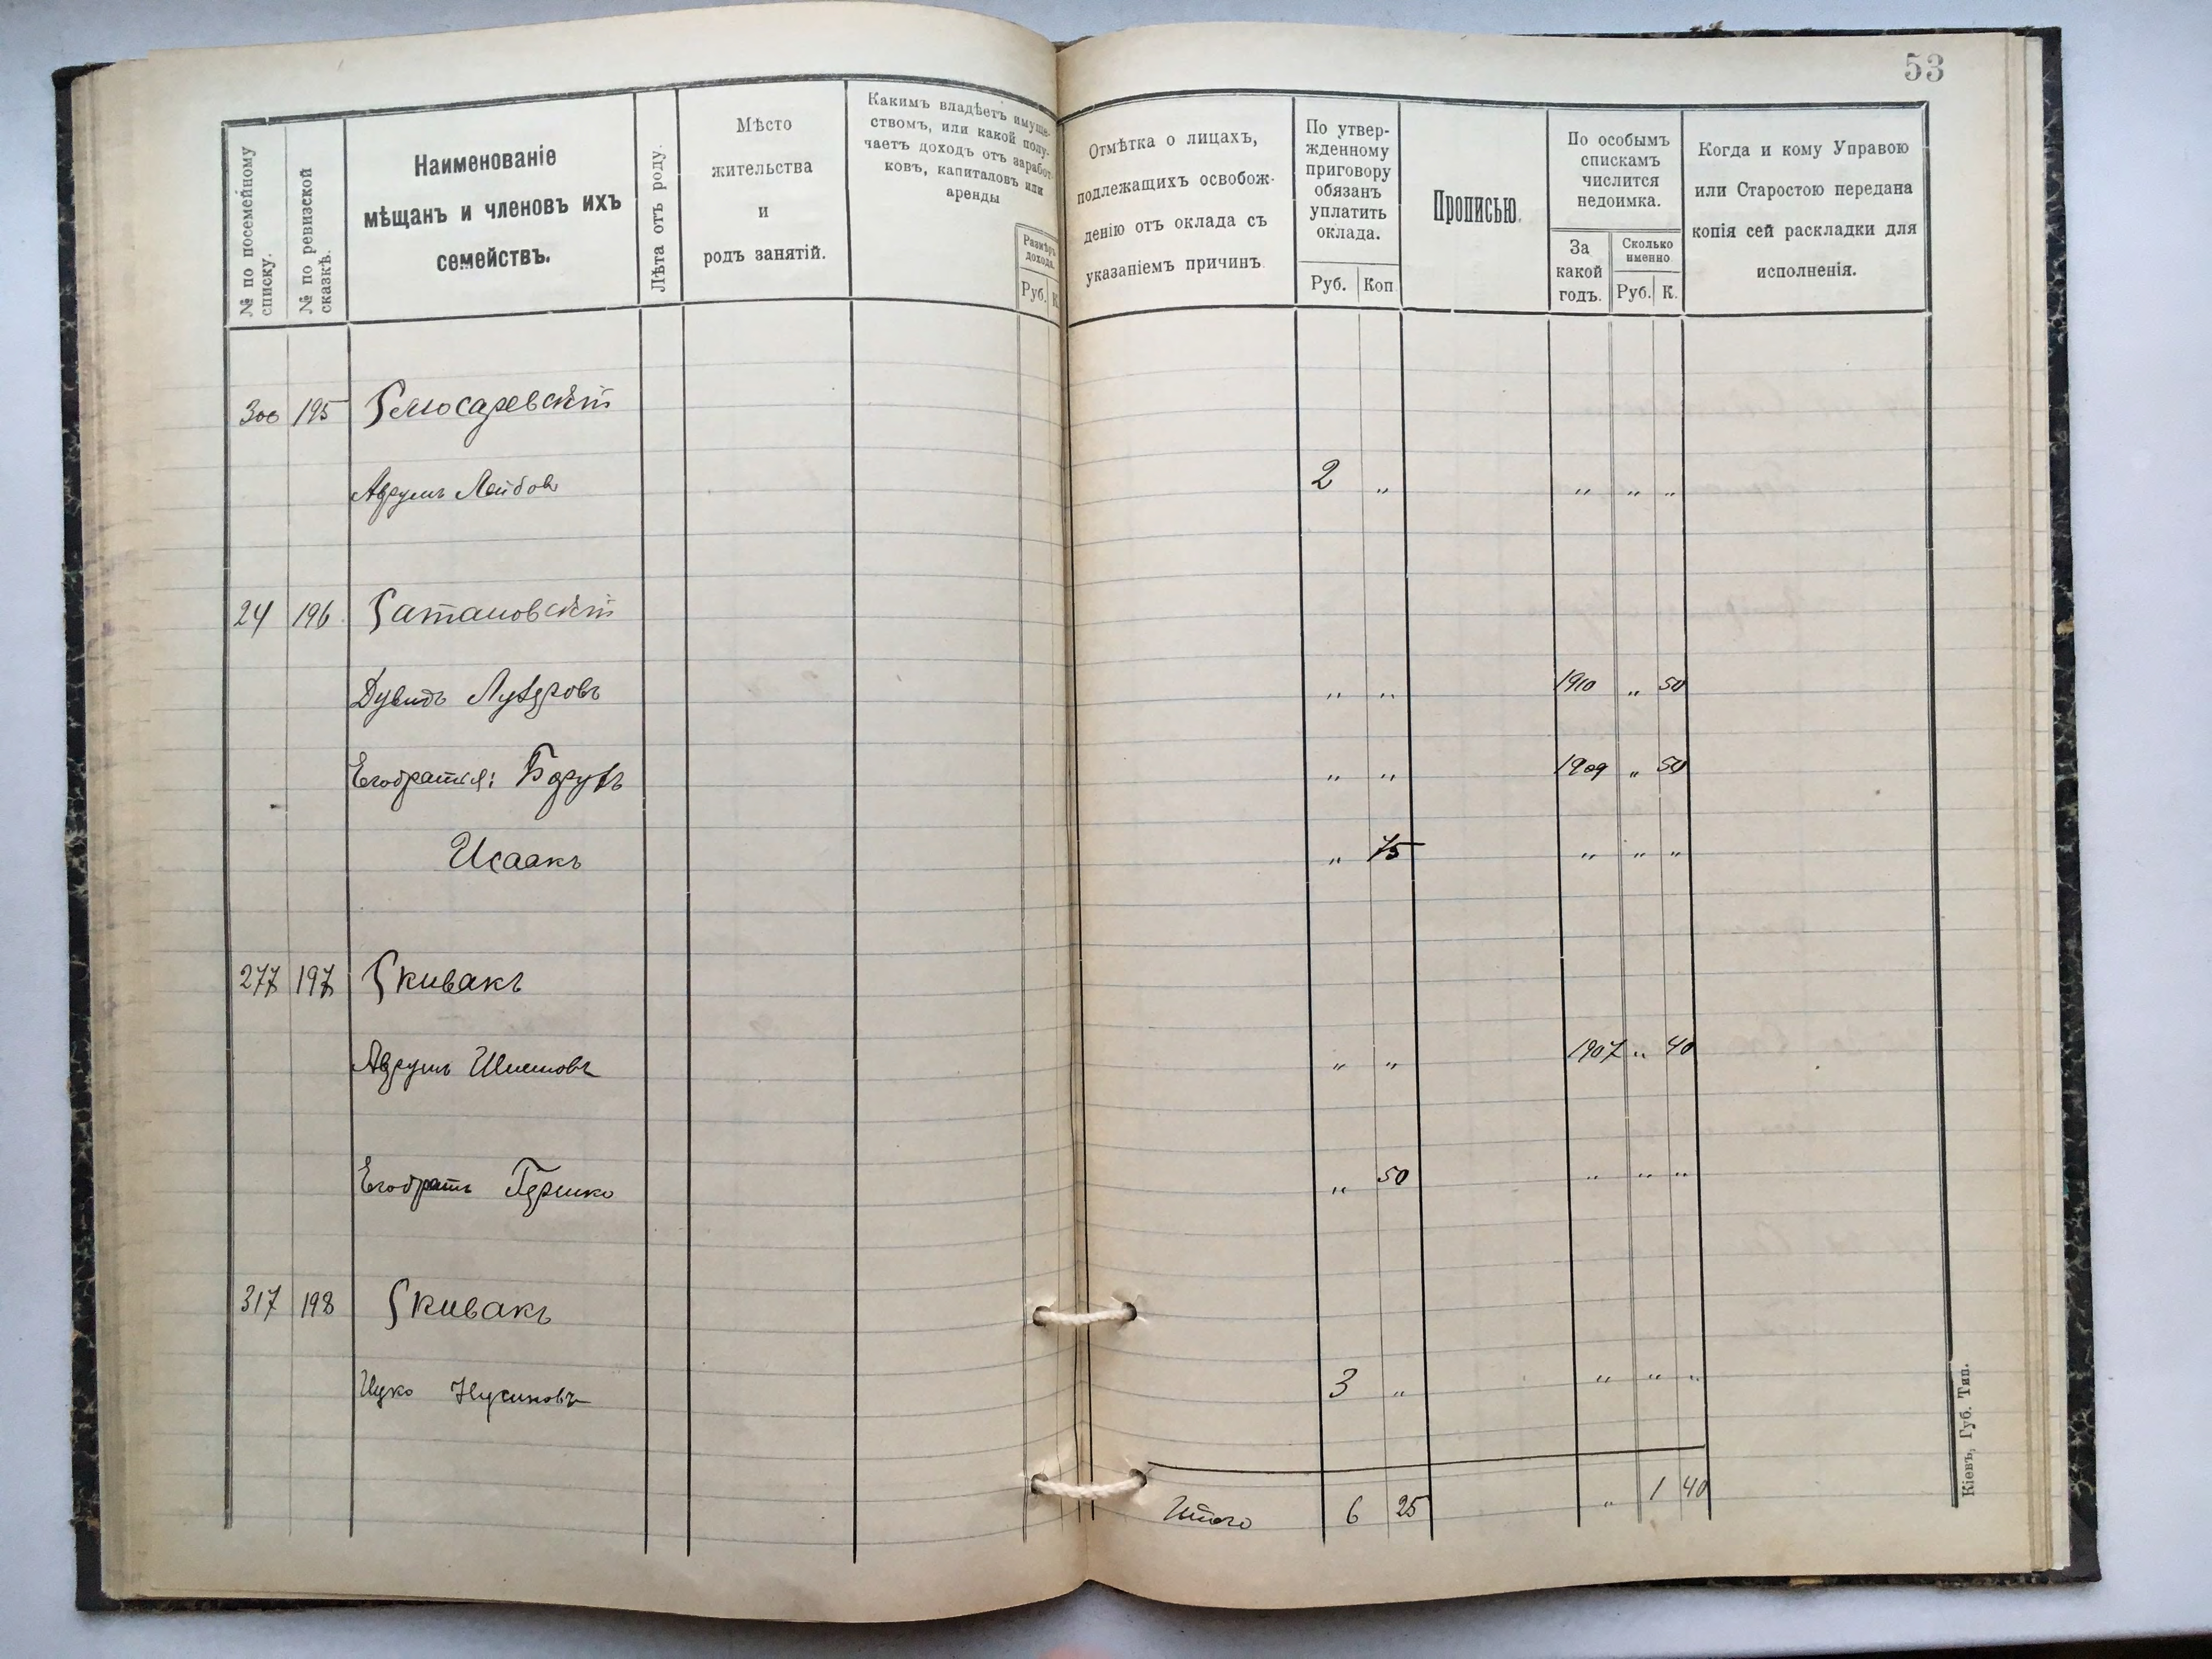 53
№ по посемейному списку.
№ по ревизской сказкѣ.
Наименованіе
мѣщанъ и членовъ ихъ
семействъ.
Лѣта отъ роду.
Мѣсто
жительства
и
родъ занятій.
Какимъ владѣетъ имуще-
ствомъ, или какой полу-
чаетъ доходъ отъ заработ-
ковъ, капиталовъ или
аренды
Размѣръ
дохода.
Руб. К.
Отмѣтка о лицахъ,
подлежащихъ освобож-
денію отъ оклада съ
указаніемъ причинъ
По утвер-
жденному
приговору
обязанъ
уплатить
оклада.
Руб. Коп.
Прописью.
По особымъ
спискамъ
числится
недоимка.
За
какой
годъ.
Сколько
именно
Руб. К.
Когда и кому Управою
или Старостою передана
копія сей раскладки для
исполненія.
300 195 Слюсаревскій
Аврумъ Лейбов 2 „ „ „ „
24 196 Сатановскій
Дувидъ Лузеровъ „ „ 1910 „ 50
Его братья: Борухъ „ „ 1909 „ 50
Исаакъ „ 75 „ „ „
277 197 Сkивакъ
Аврумъ Шмулевъ „ „ 1907 „ 40
Его братъ Гершко „ 50 „ „ „
317 198 Скивакъ
Ицко Нусиновъ 3 „ „ „ „
Итого 6 25 „ 1 40
Кіевъ, Губ. Тип.